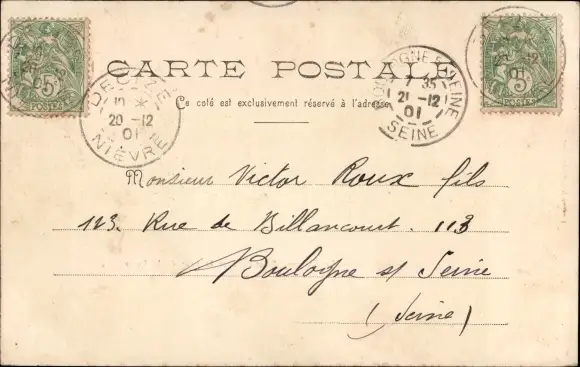 CARTE POSTALE
Ce coté est exclusivement réservé à l'adresse
5c
POSTES
DECIZE
20 -12
01
NIÈVRE
BOULOGNE S SEINE
7 35
21 -12
01
SEINE
5c
POSTES
Monsieur Victor Roux fils
123. Rue de Billancourt. 113
Boulogne s/ Seine
(Seine)